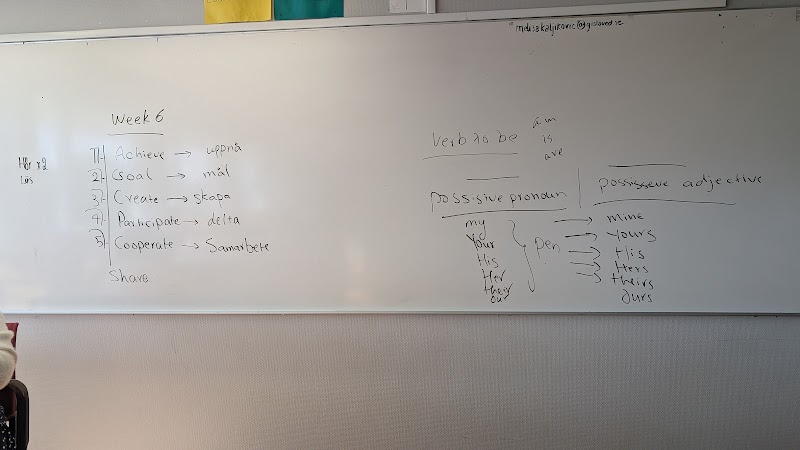 Week 6
1) Achieve → uppnå
2) Goal → mål
3) Create → skapa
4) Participate → delta
5) Cooperate → Samarbete
Share
x2
Läs
Verb to be
am
is
are
possisive pronoun
my
Your
His
Her
their
our
pen
possisseve adjective
mine
yours
His
Hers
theirs
ours